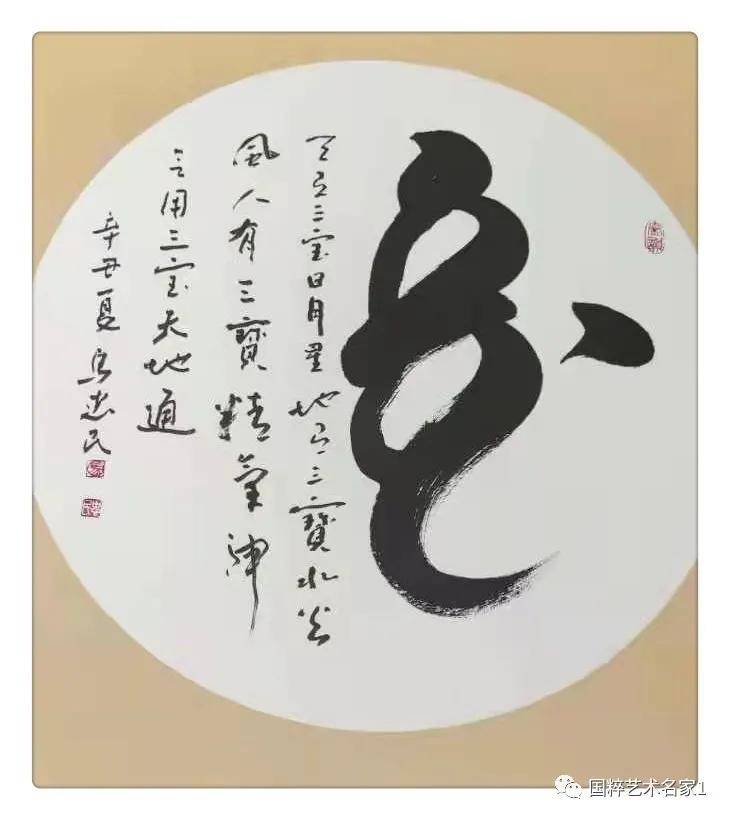 天有三宝日月星地有三寶水火
風人有三寶精氣神
善用三宝天地通
辛丑夏忠民
国粹艺术名家1